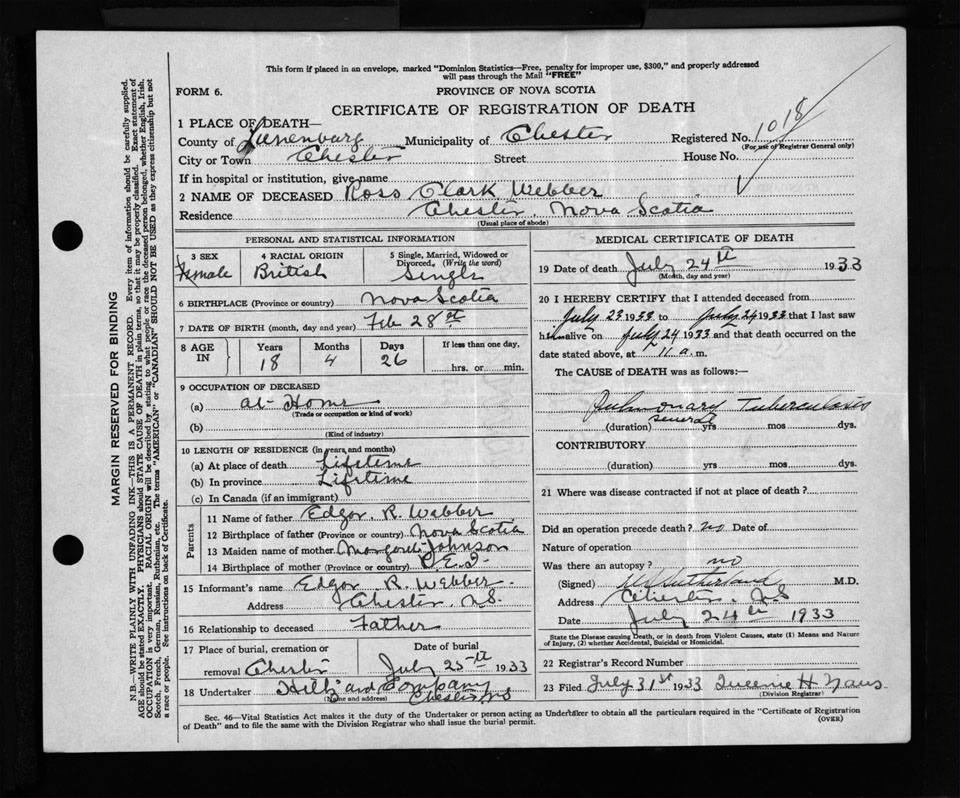 This form if placed in an envelope, marked "Dominion Statistics—Free, penalty for improper use, $300," and properly addressed
will pass through the Mail "FREE"
FORM 6. PROVINCE OF NOVA SCOTIA
CERTIFICATE OF REGISTRATION OF DEATH
1 PLACE OF DEATH—
County of Lunenburg Municipality of Chester Registered No. 1018
(For use of Registrar General only)
City or Town Chester Street House No.
If in hospital or institution, give name
2 NAME OF DECEASED Ross Clark Webber
Residence Chester, Nova Scotia
(Usual place of abode)
PERSONAL AND STATISTICAL INFORMATION
3 SEX 4 RACIAL ORIGIN 5 Single, Married, Widowed or
Divorced. (Write the word)
Female British Single
6 BIRTHPLACE (Province or country) Nova Scotia
7 DATE OF BIRTH (month, day and year) Feb 28st
8 AGE IN Years Months Days If less than one day,
18 4 26 hrs. or min.
9 OCCUPATION OF DECEASED
(a) at Home
(Trade or occupation or kind of work)
(b)
(Kind of industry)
10 LENGTH OF RESIDENCE (in years and months)
(a) At place of death Lifetime
(b) In province Lifetime
(c) In Canada (if an immigrant)
Parents
11 Name of father Edgar. R. Webber
12 Birthplace of father (Province or country) Nova Scotia
13 Maiden name of mother Johnson
14 Birthplace of mother (Province or country) P.E.I
15 Informant's name Edgar R. Webber
Address Chester, N.S.
16 Relationship to deceased Father
17 Place of burial, cremation or Date of burial
removal Chester July 25th 1933
18 Undertaker and Company
(Name and address) Chester, NS
MEDICAL CERTIFICATE OF DEATH
19 Date of death July 24th 1933
(Month, day and year)
20 I HEREBY CERTIFY that I attended deceased from
July 23 1933 to July 24 1933 that I last saw
him alive on July 24 1933 and that death occurred on the
date stated above, at 11 a. m.
The CAUSE of DEATH was as follows:—
Pulmonary Tuberculosis
(duration) several yrs mos dys.
CONTRIBUTORY
(duration) yrs mos dys.
21 Where was disease contracted if not at place of death?
Did an operation precede death? no Date of
Nature of operation
Was there an autopsy? no
(Signed) Sutherland M.D.
Address Chester, NS
Date July 24th 1933
State the Disease causing Death, or in death from Violent Causes, state (1) Means and Nature
of Injury, (2) whether Accidental, Suicidal or Homicidal.
22 Registrar's Record Number
23 Filed July 31st 1933 H.
(Division Registrar)
Sec. 46—Vital Statistics Act makes it the duty of the Undertaker or person acting as Undertaker to obtain all the particulars required in the "Certificate of Registration
of Death" and to file the same with the Division Registrar who shall issue the burial permit. (OVER)
MARGIN RESERVED FOR BINDING
N.B.—WRITE PLAINLY WITH UNFADING INK—THIS IS A PERMANENT RECORD. Every item of information should be carefully supplied.
AGE should be stated EXACTLY. PHYSICIANS should STATE CAUSE OF DEATH in plain terms, so that it may be properly classified. Exact statement of
OCCUPATION is very important. RACIAL ORIGIN will be described by stating to what people or race the deceased person belonged, whether English, Irish,
Scotch, French, German, Russian, Ruthenian, etc. The terms "AMERICAN" or "CANADIAN" SHOULD NOT BE USED as they express citizenship but not
a race or people. See instructions on back of Certificate.